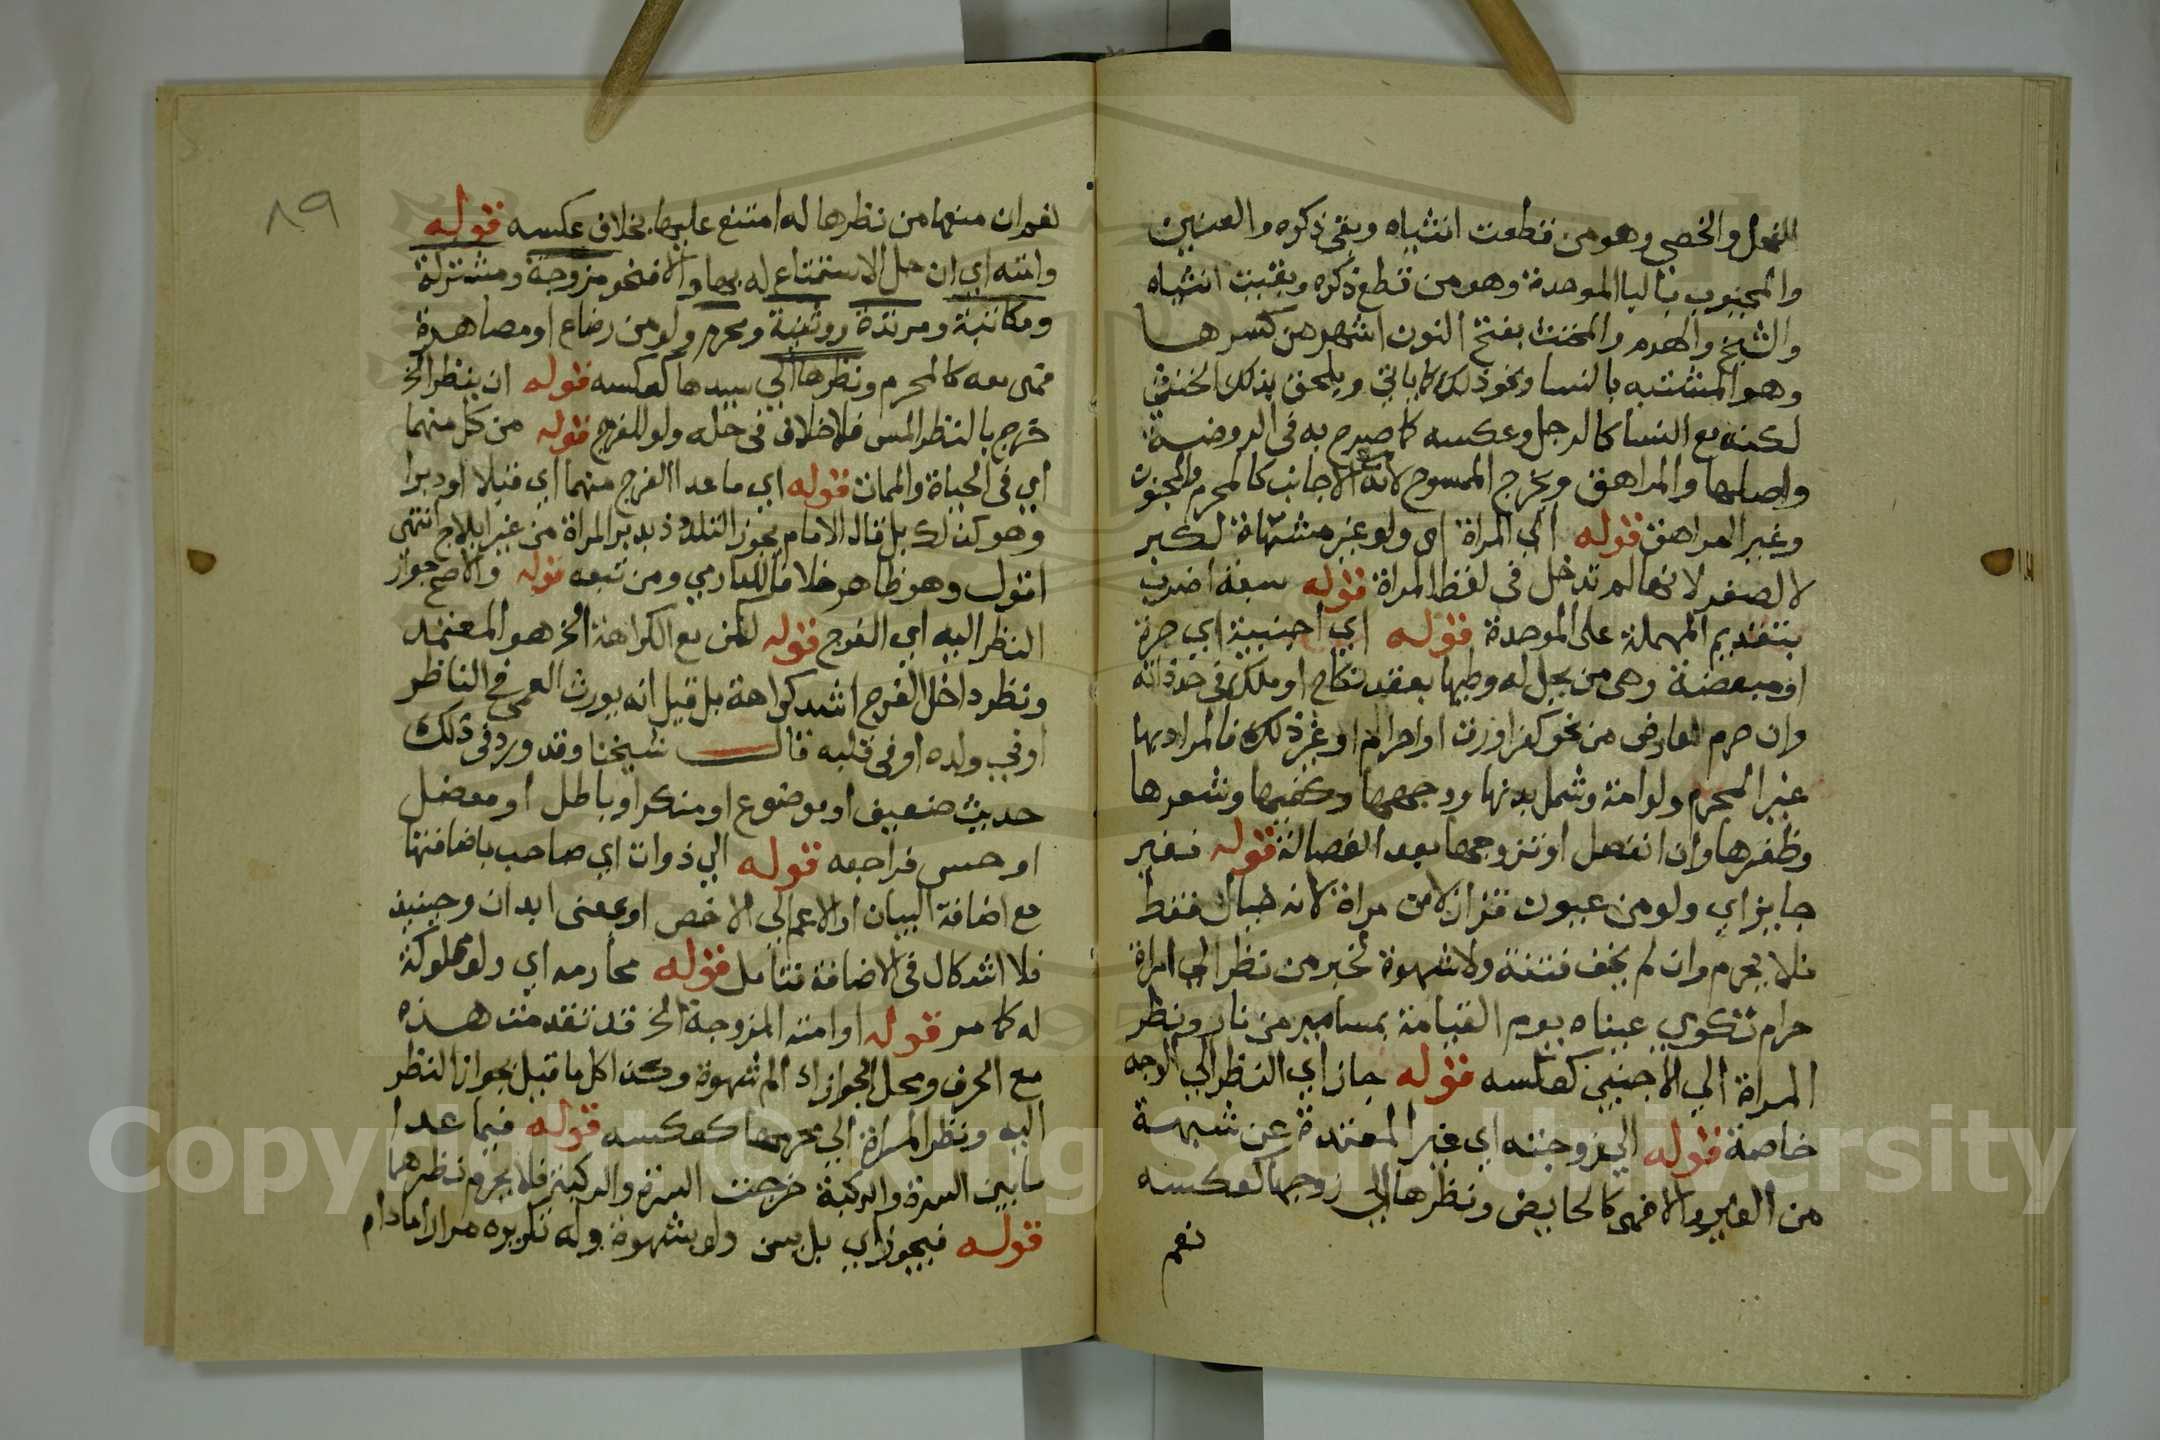 للفحل والخصي وهو من قطعت انثياه وبقي ذكره والعنين
والمجبوب بالبا الموحدة وهو من قطع ذكره وبقيت انثياه
والشيخ والهدم والمخنث بفتح النون اشهر من كسرها
وهو المتشبه بالنسا ونحو ذلك كما ياتي ويلحق بذلك الخنثى
لكنه مع النسا كالرجل وعكسه كما صرح به في الروضة
واصلها والمراهق ويخرج الممسوح لانه مع الاجانب كالمحرم والمجنون
وغير المراهق قوله الى المراة اي ولو غير مشتهاة لكبر
لا لصغر لانها لم تدخل في لفظ المراة قوله سبعة اضرب
بتقديم المهملة على الموحدة قوله اي اجنبية اي حرة
او مبعضة وهي من يحل له وطيها بعقد نكاح او ملك في حد ذاته
وان حرم لعارض من نحو كفر او رق او احرام او غير ذلك فالمراد بها
غير المحرم ولو امة وشمل بدنها ووجهها وكفيها وشعرها
وظفرها وان انفصل او تزوجها بعد انفصاله قوله فغير
جايز اي ولو من عيون قزاز لا من مراة لانه خيال فقط
فلا يحرم وان لم يخف فتنة ولا شهوة لخبر من نظر الى امراة
حرام تكوي عيناه يوم القيامة بمسامير من نار ونظر
المراة الى الاجنبي كعكسه قوله جاز اي النظر الى الاجه
خاصة قوله الى زوجته اي غير المعتدة عن شبهة
من الغير والا فهي كالحايض ونظرها الى زوجها كعكسه
نعم
٨٩
نعم ان منعها من نظرها له امتنع عليها بخلاف عكسه قوله
وامته اي ان حل الاستمتاع له بها والا فنحو مزوجة ومشتركة
ومكاتبة ومرتدة ووثنية ومحرم ولو من رضاع او مصاهرة
فهي معه كالمحرم ونظرها الي سيدها كعكسه قوله ان ينظر الخ
خرج بالنظر المس فلا خلاف في حله ولو للفرج قوله من كل منهما
اي في الحياة والممات قوله اي ما عدا الفرج منهما اي قبلا او دبرا
وهو كذلك بل قال الامام يجوز التلذذ بدبر المراة من غير ايلاج انتهى
اقول وهو ظاهر خلافا للدارمي ومن تبعه قوله والاصح جواز
النظر اليه اي الفرج قوله لكن مع الكراهة الخ هو المعتمد
ونظر داخل الفرج اشد كراهة بل قيل انه يورث العمي في الناظر
او في ولده او في قلبه قال شيخنا وقد ورد في ذلك
حديث ضعيف او موضوع او منكر او باطل او معضل
او حسن فراجعه قوله الي ذوات اي صاحب باضافتها
مع اضافة البيان او الاعم الي الاخص او بمعنى ابدان وحينيذ
فلا اشكال في الاضافة فتامل قوله محارمه اي ولو مملوكة
له كما مر قوله او امته المزوجة الخ قد تقدمت هذه
مع الحرف ومحل الجواز ان لم شهوة وكذا كل ما قيل بجواز النظر
اليه ونظر المراة الي محرمها كعكسه قوله فيما عدا
ما بين السرة والركبة خرجت السرة والركبة فلا يحرم نظرهما
قوله فيجوز اي بل يسن ولو بشهوة وله تكريره مرارا ما دام
Copyright © King Saud University